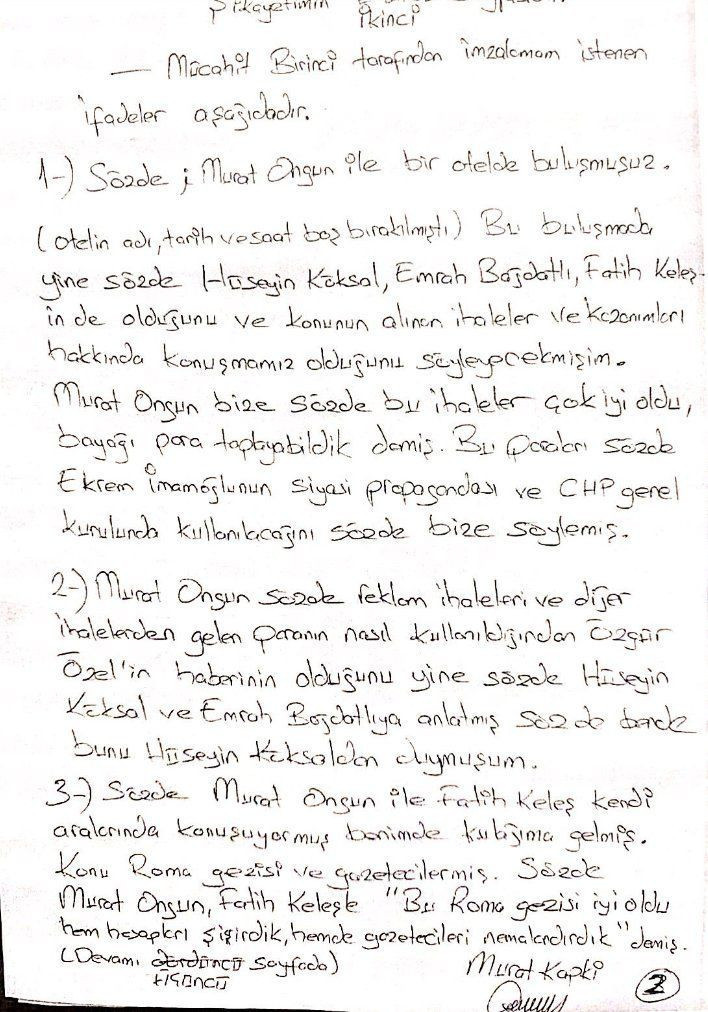 Şikayetimin İkinci
— Mücahit Birinci tarafından imzalamam istenen
ifadeler aşağıdadır.
1-) Sözde ; Murat Ongun ile bir otelde buluşmuşuz.
(otelin adı, tarih ve saat boş bırakılmıştı) Bu buluşmada
yine sözde Hüseyin Köksal, Emrah Bağdatlı, Fatih Keleş-
in de olduğunu ve konunun alınan ihaleler ve kazanımları
hakkında konuşmamız olduğunu söyleyecekmişim.
Murat Ongun bize sözde bu ihaleler çok iyi oldu,
bayağı para toplayabildik demiş. Bu paraları sözde
Ekrem İmamoğlunun siyasi propagandası ve CHP genel
kurulunda kullanılacağını sözde bize söylemiş.
2-) Murat Ongun sözde reklam ihaleleri ve diğer
ihalelerden gelen paranın nasıl kullanıldığından Özgür
Özel'in haberinin olduğunu yine sözde Hüseyin
Köksal ve Emrah Bağdatlıya anlatmış sözde bende
bunu Hüseyin Köksaldan duymuşum.
3-) Sözde Murat Ongun ile Fatih Keleş kendi
aralarında konuşuyormuş benimde kulağıma gelmiş.
Konu Roma gezisi ve gazetecilermiş. Sözde
Murat Ongun, Fatih Keleşe "Bu Roma gezisi iyi oldu
hem hesapları şişirdik, hemde gazetecileri nemalandırdık" demiş.
(Devamı dördüncü sayfada)
üçüncü
Murat Kapki
2